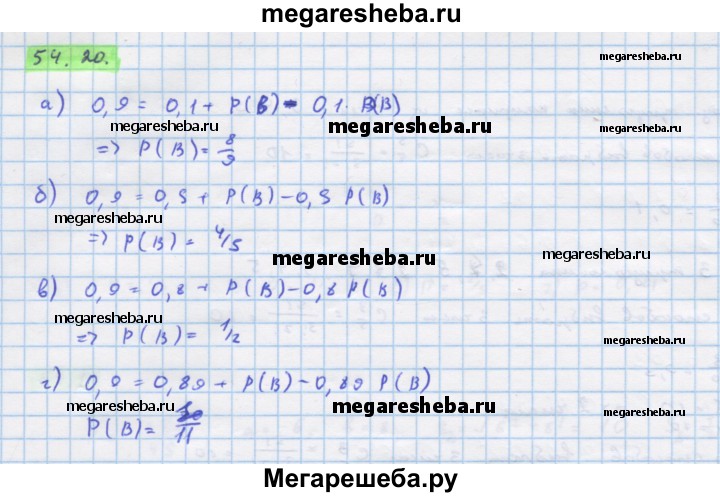 megaresheba.ru
54.20.
megaresheba.ru
а) 0,9 = 0,1 + P(B) - 0,1. P(B)
megaresheba.ru megaresheba.ru
=> P(B) = 8/9
б) 0,9 = 0,5 + P(B) - 0,5 P(B)
megaresheba.ru
=> P(B) = 4/5
megaresheba.ru megaresheba.ru
в) 0,9 = 0,8 + P(B) - 0,8 P(B)
megaresheba.ru
=> P(B) = 1/2
megaresheba.ru
г) 0,9 = 0,89 + P(B) - 0,89 P(B)
megaresheba.ru megaresheba.ru megaresheba.ru
P(B) = /11
Мегарешеба.ру